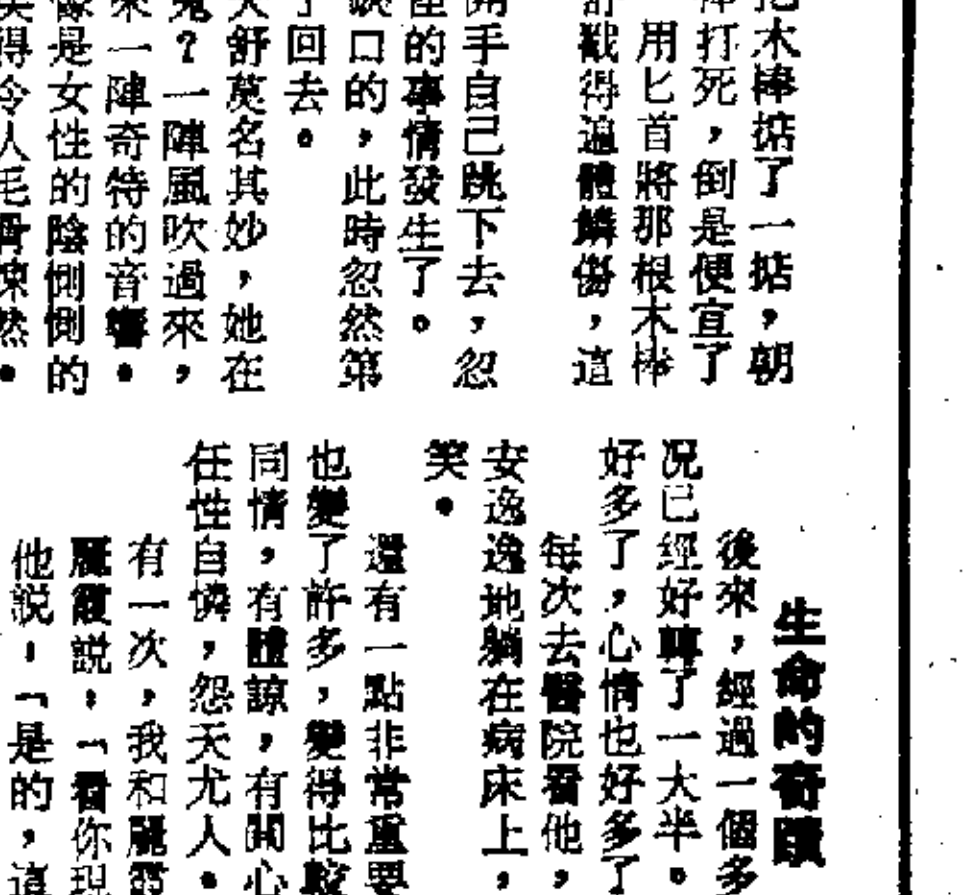 把木棒掂了一掂，朝
棒打死，倒是便宜了
用匕首將那根木棒
舒戳得遍體鱗傷，這
開手自己跳下去，忽
怪的事情發生了。
缺口的，此時忽然第
了回去。
大舒莫名其妙，她在
鬼？一陣風吹過來，
來一陣奇特的音響。
像是女性的陰惻惻的
笑得令人毛骨悚然。
生命的奇蹟
後來，經過一個多
况已經好轉了一大半。
好多了，心情也好多了
每次去醫院看他，
安逸逸地躺在病床上，
笑。
還有一點非常重要
也變了許多，變得比較
同情，有體諒，有開心
任性自憐，怨天尤人。
有一次，我和麗霞
麗霞説：「看你現
他説：「是的，這